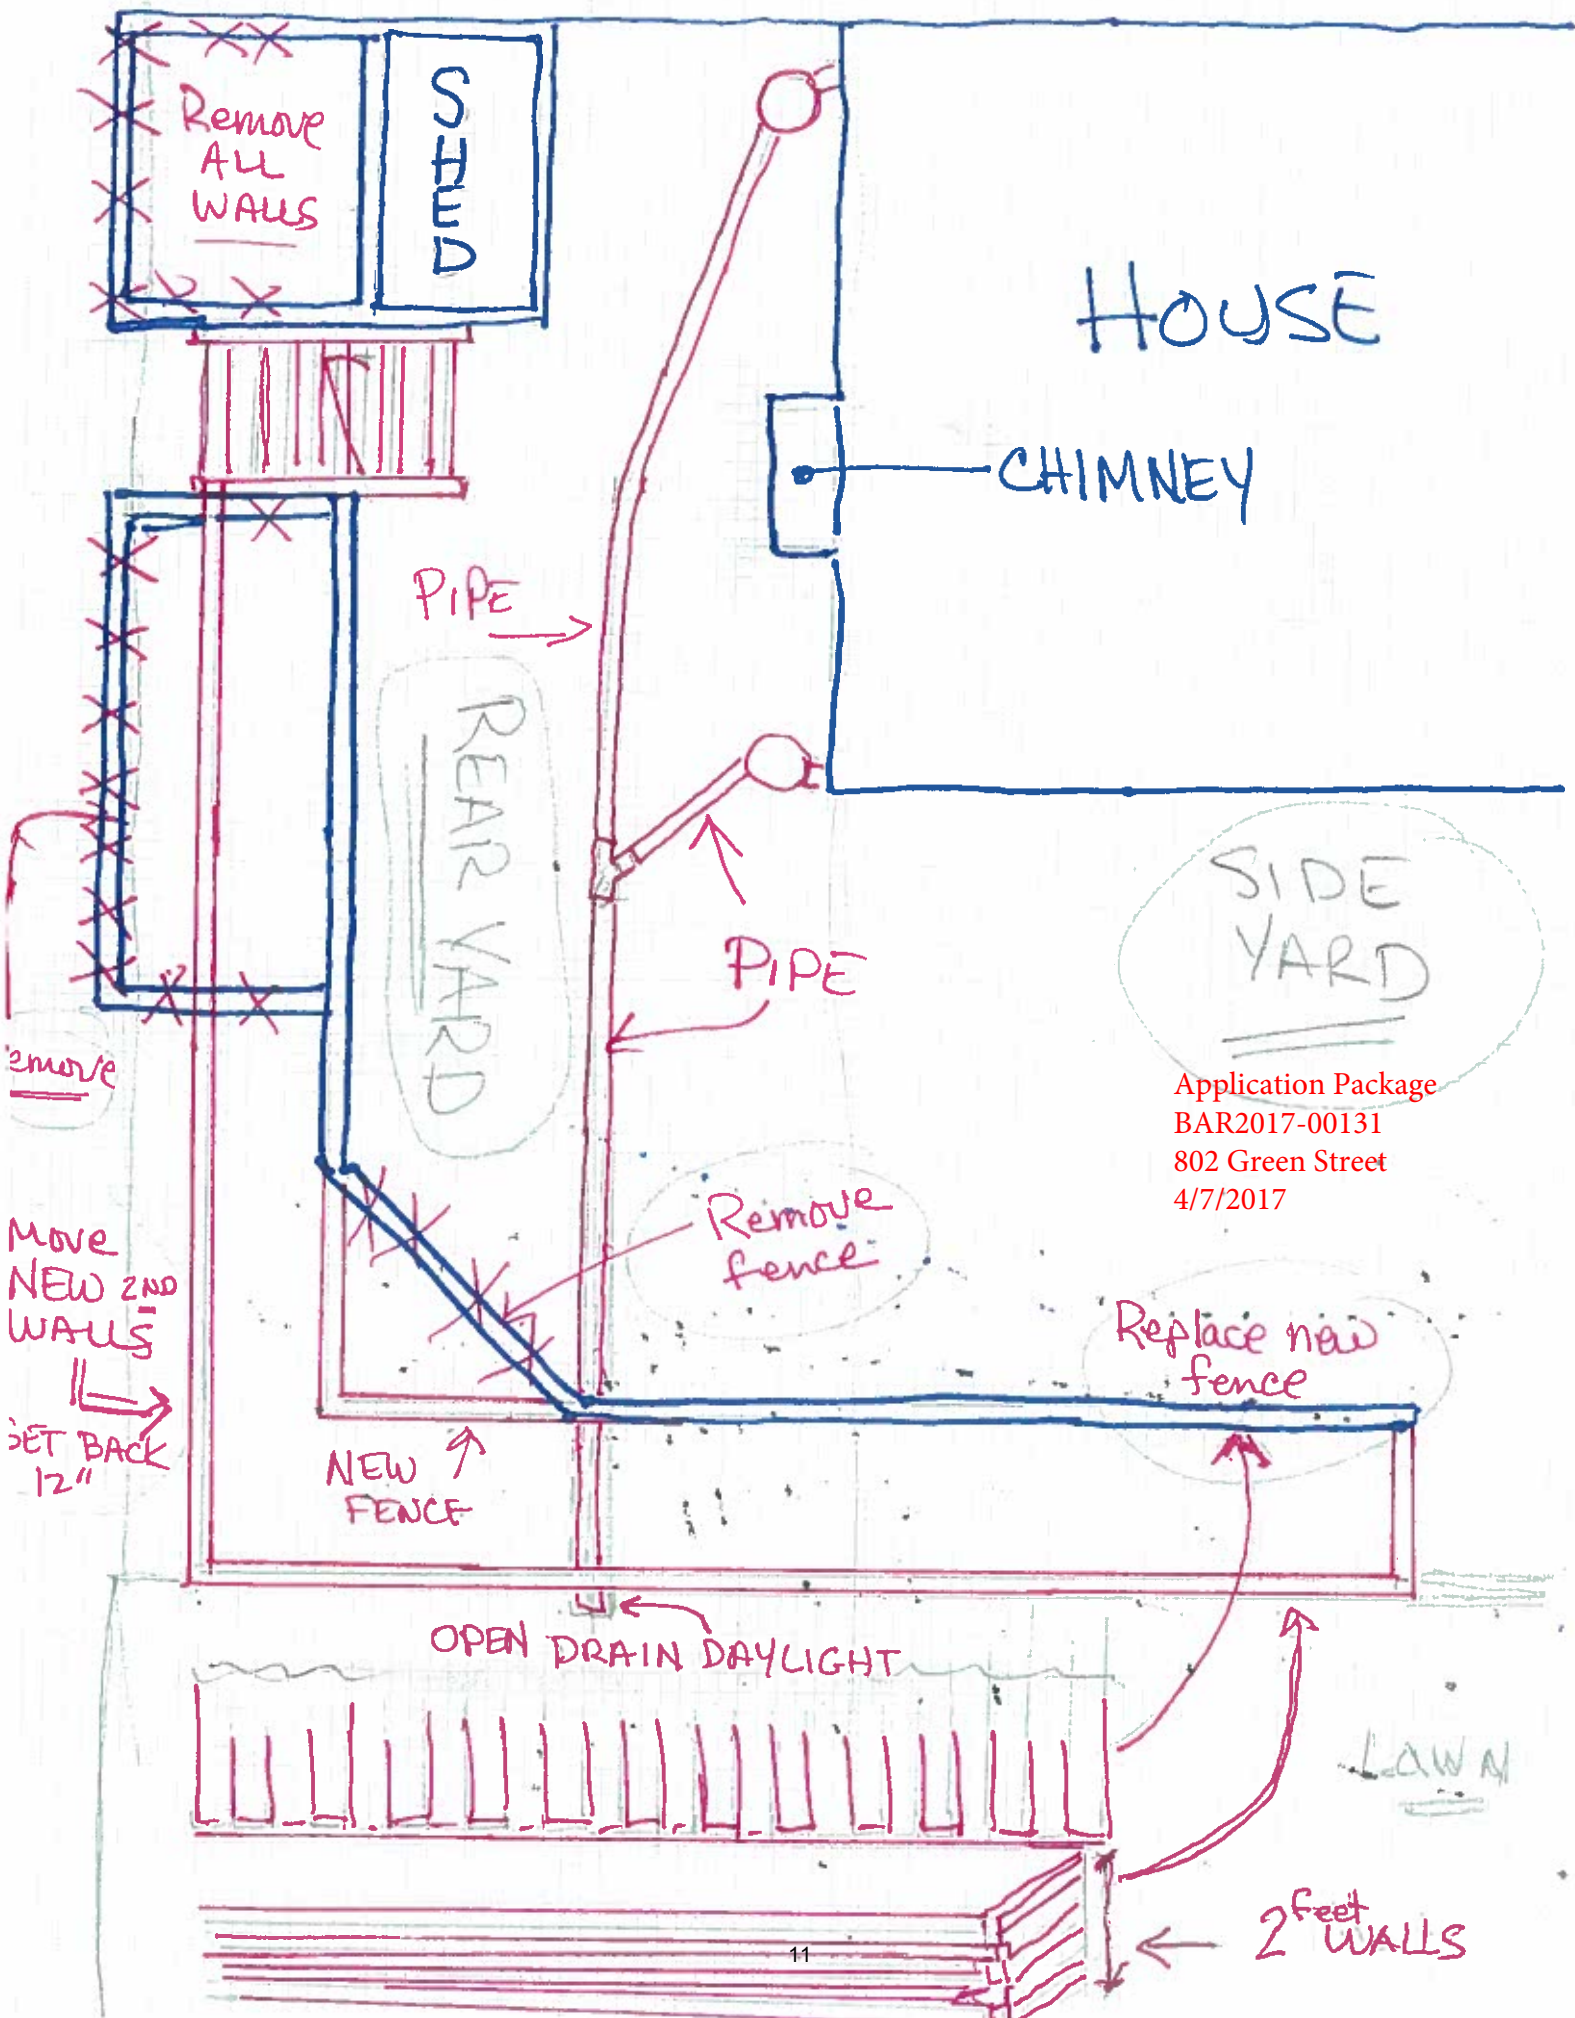 Remove
ALL
WALLS
SHED
HOUSE
CHIMNEY
PIPE
REAR YARD
SIDE
YARD
PIPE
emove
Application Package
BAR2017-00131
802 Green Street
4/7/2017
Remove
fence
MOVE
NEW 2ND
WALLS
SET BACK
12"
Replace new
fence
NEW
FENCE
OPEN DRAIN DAYLIGHT
LAWN
2 feet
WALLS
11